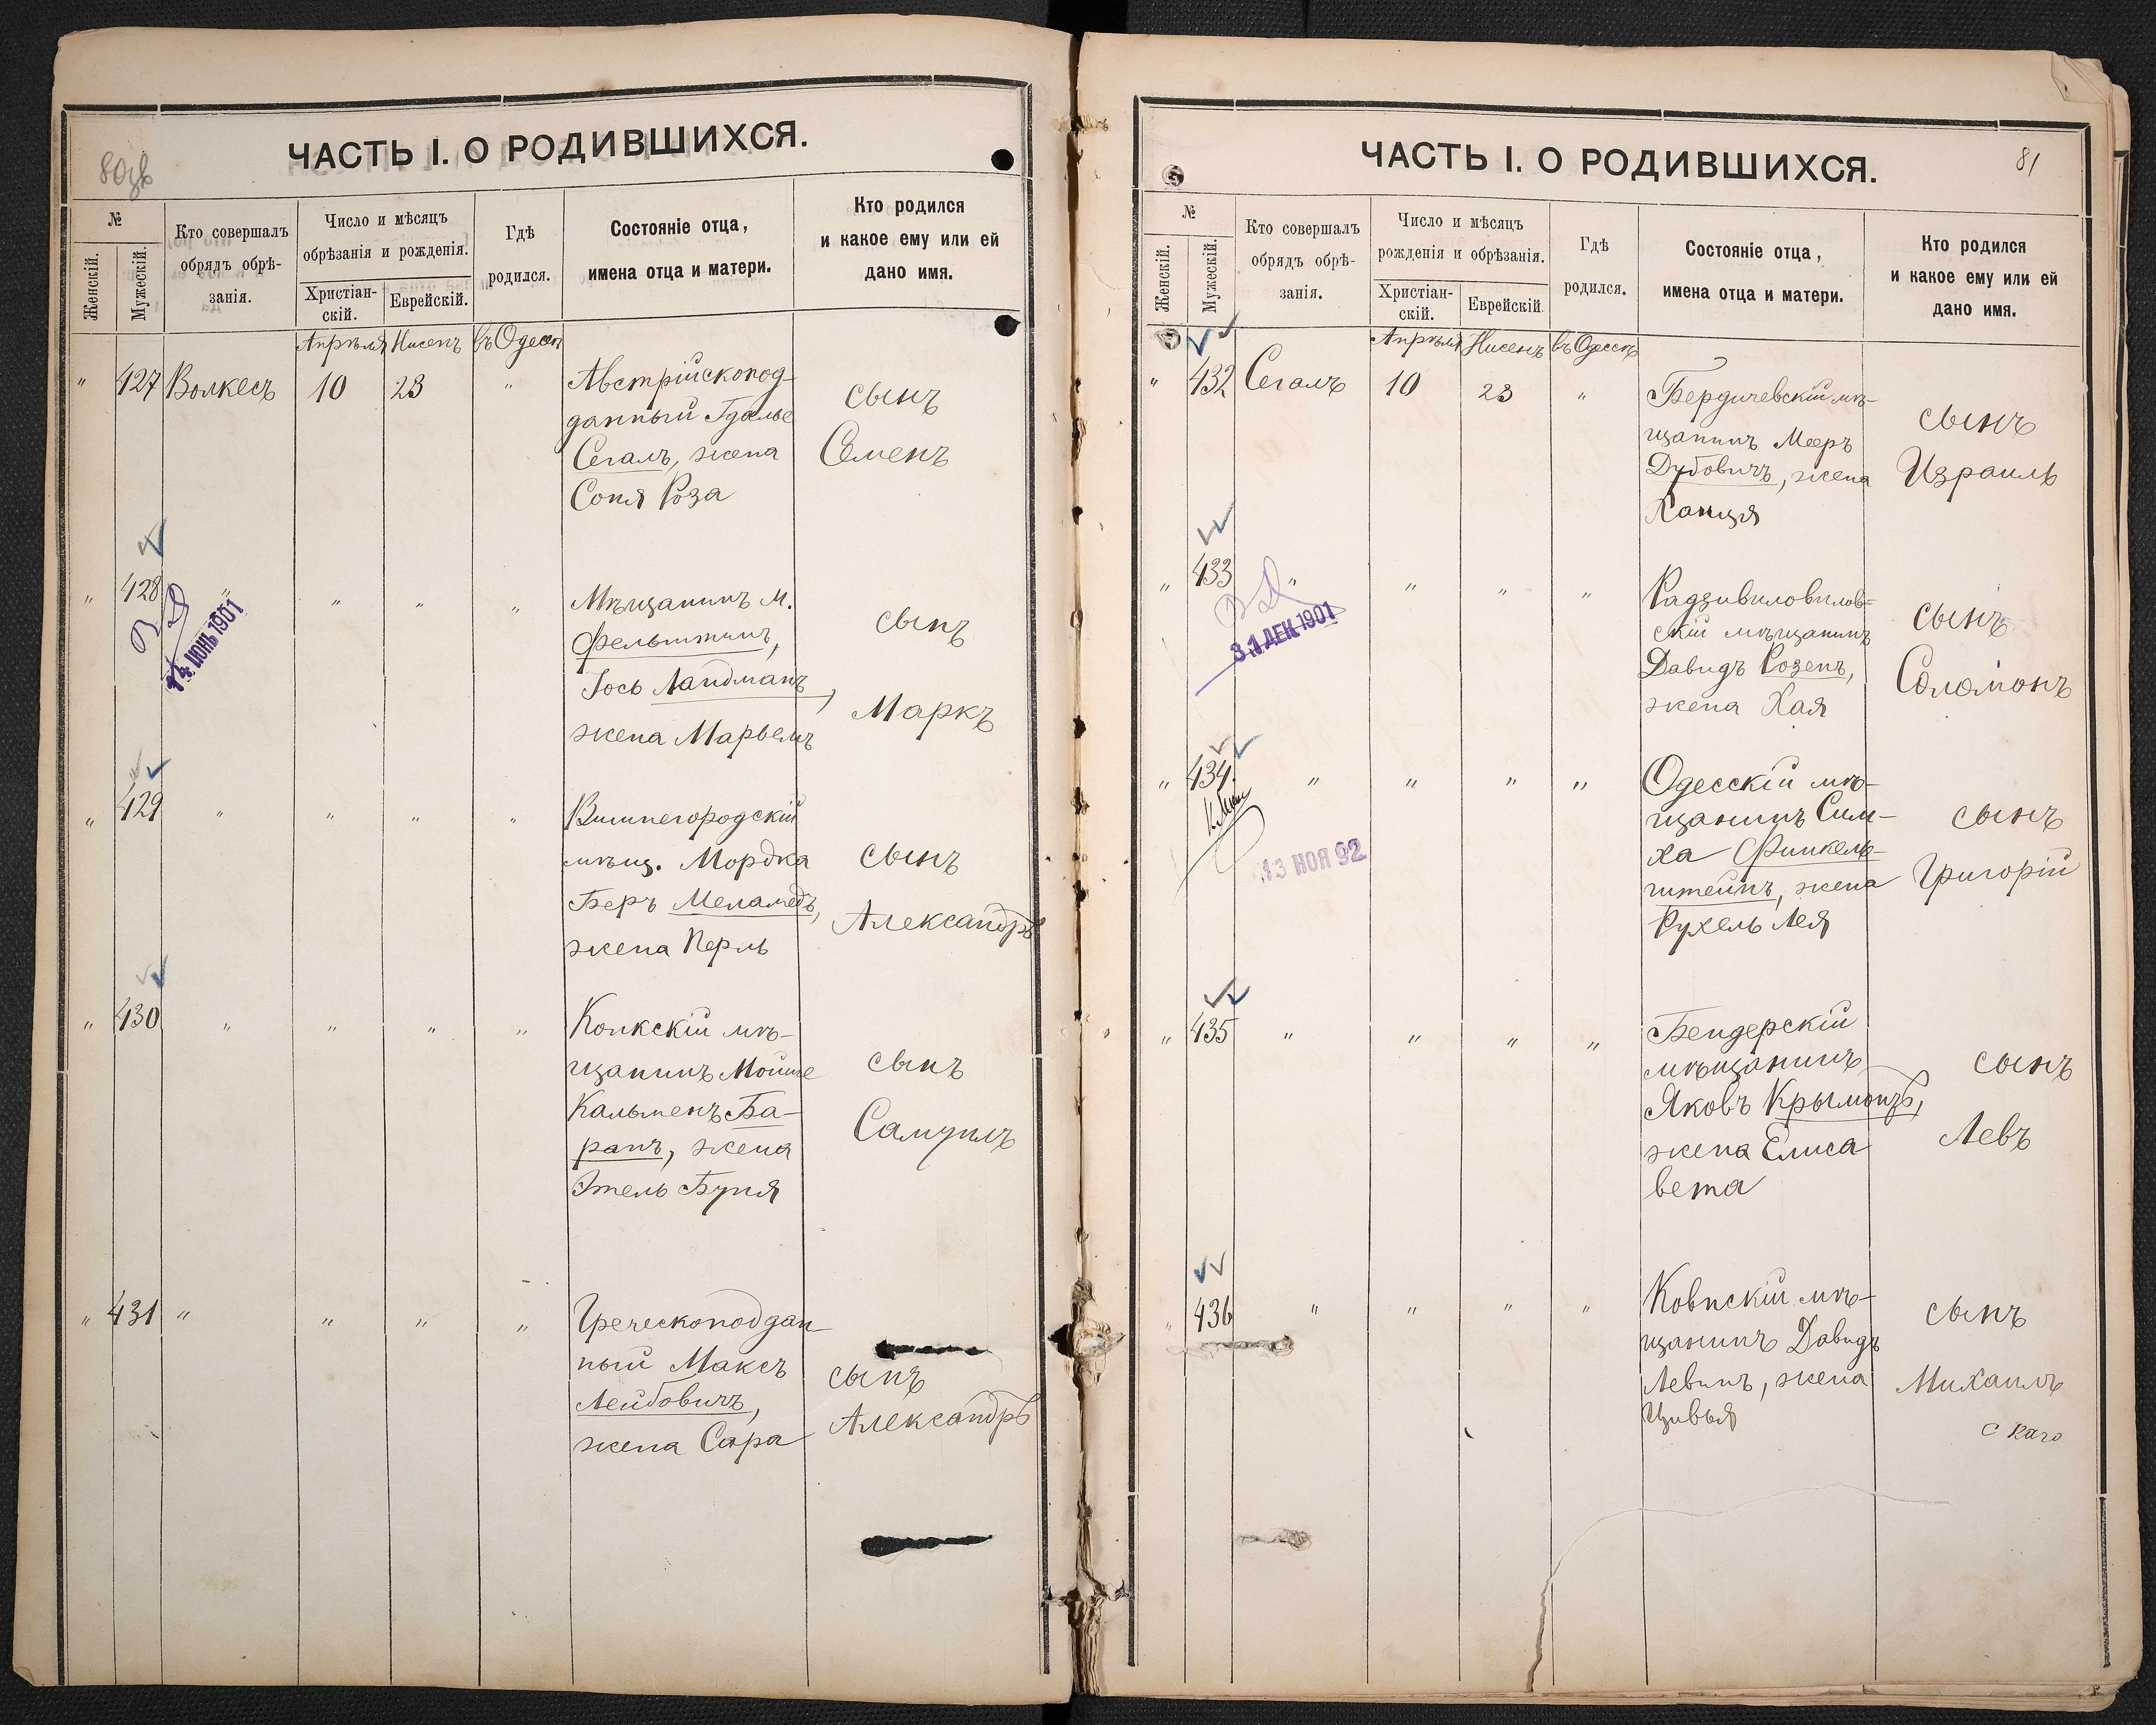 80об
ЧАСТЬ I. О РОДИВШИХСЯ.
№
Женскій.
Мужескій.
Кто совершалъ
обрядъ обрѣ-
занія.
Число и мѣсяцъ
обрѣзанія и рожденія.
Христіан-
скій.
Еврейскій.
Гдѣ
родился.
Состояніе отца,
имена отца и матери.
Кто родился
и какое ему или ей
дано имя.
Апрѣля Нисенъ въ Одессѣ
" 427 Волкесъ 10 23 "
Австрійскопод-
данный Гдалье
Сегалъ, жена
Соня Роза
сынъ
Семенъ
" 428 " " " "
14 ИЮНЬ 1901
Мѣщанинъ м.
Фельштинъ,
Іось Ландманъ,
жена Марьемъ
сынъ
Маркъ
" 429 " " " "
Вишнегородскій
мѣщ. Мордка
Беръ Меламедъ,
жена Перль
сынъ
Александръ
" 430 " " " "
Колкскій мѣ-
щанинъ Мойше
Кальменъ Ба-
ранъ, жена
Этель Буня
сынъ
Самуилъ
" 431 " " " "
Греческоподдан
ный Максъ
Лейбовичъ,
жена Сара
сынъ
Александръ
81
ЧАСТЬ I. О РОДИВШИХСЯ.
№
Женскій.
Мужескій.
Кто совершалъ
обрядъ обрѣ-
занія.
Число и мѣсяцъ
рожденія и обрѣзанія.
Христіан-
скій.
Еврейскій
Гдѣ
родился.
Состояніе отца,
имена отца и матери.
Кто родился
и какое ему или ей
дано имя.
Апрѣля Нисенъ въ Одессѣ
" 432 Сегалъ 10 23 "
Бердичевскій мѣ-
щанинъ Мееръ
Дубовичъ, жена
Ханця
сынъ
Израиль
" 433 " " " "
31 ДЕК 1901
Радзивиловилов-
скій мѣщанинъ
Давидъ Розенъ,
жена Хая
сынъ
Соломонъ
" 434. " " " "
13 НОЯ 92
Одесскій мѣ-
щанинъ Сим-
ха Финкель-
штейнъ, жена
Рухель Лея
сынъ
Григорій
" 435 " " " "
Бендерскій
мѣщанинъ
Яковъ Крымонтъ,
жена Елиса
вета
сынъ
Левъ
" 436 " " " "
Ковнскій мѣ-
щанинъ Давидъ
Левинъ, жена
Цивья
сынъ
Михаилъ